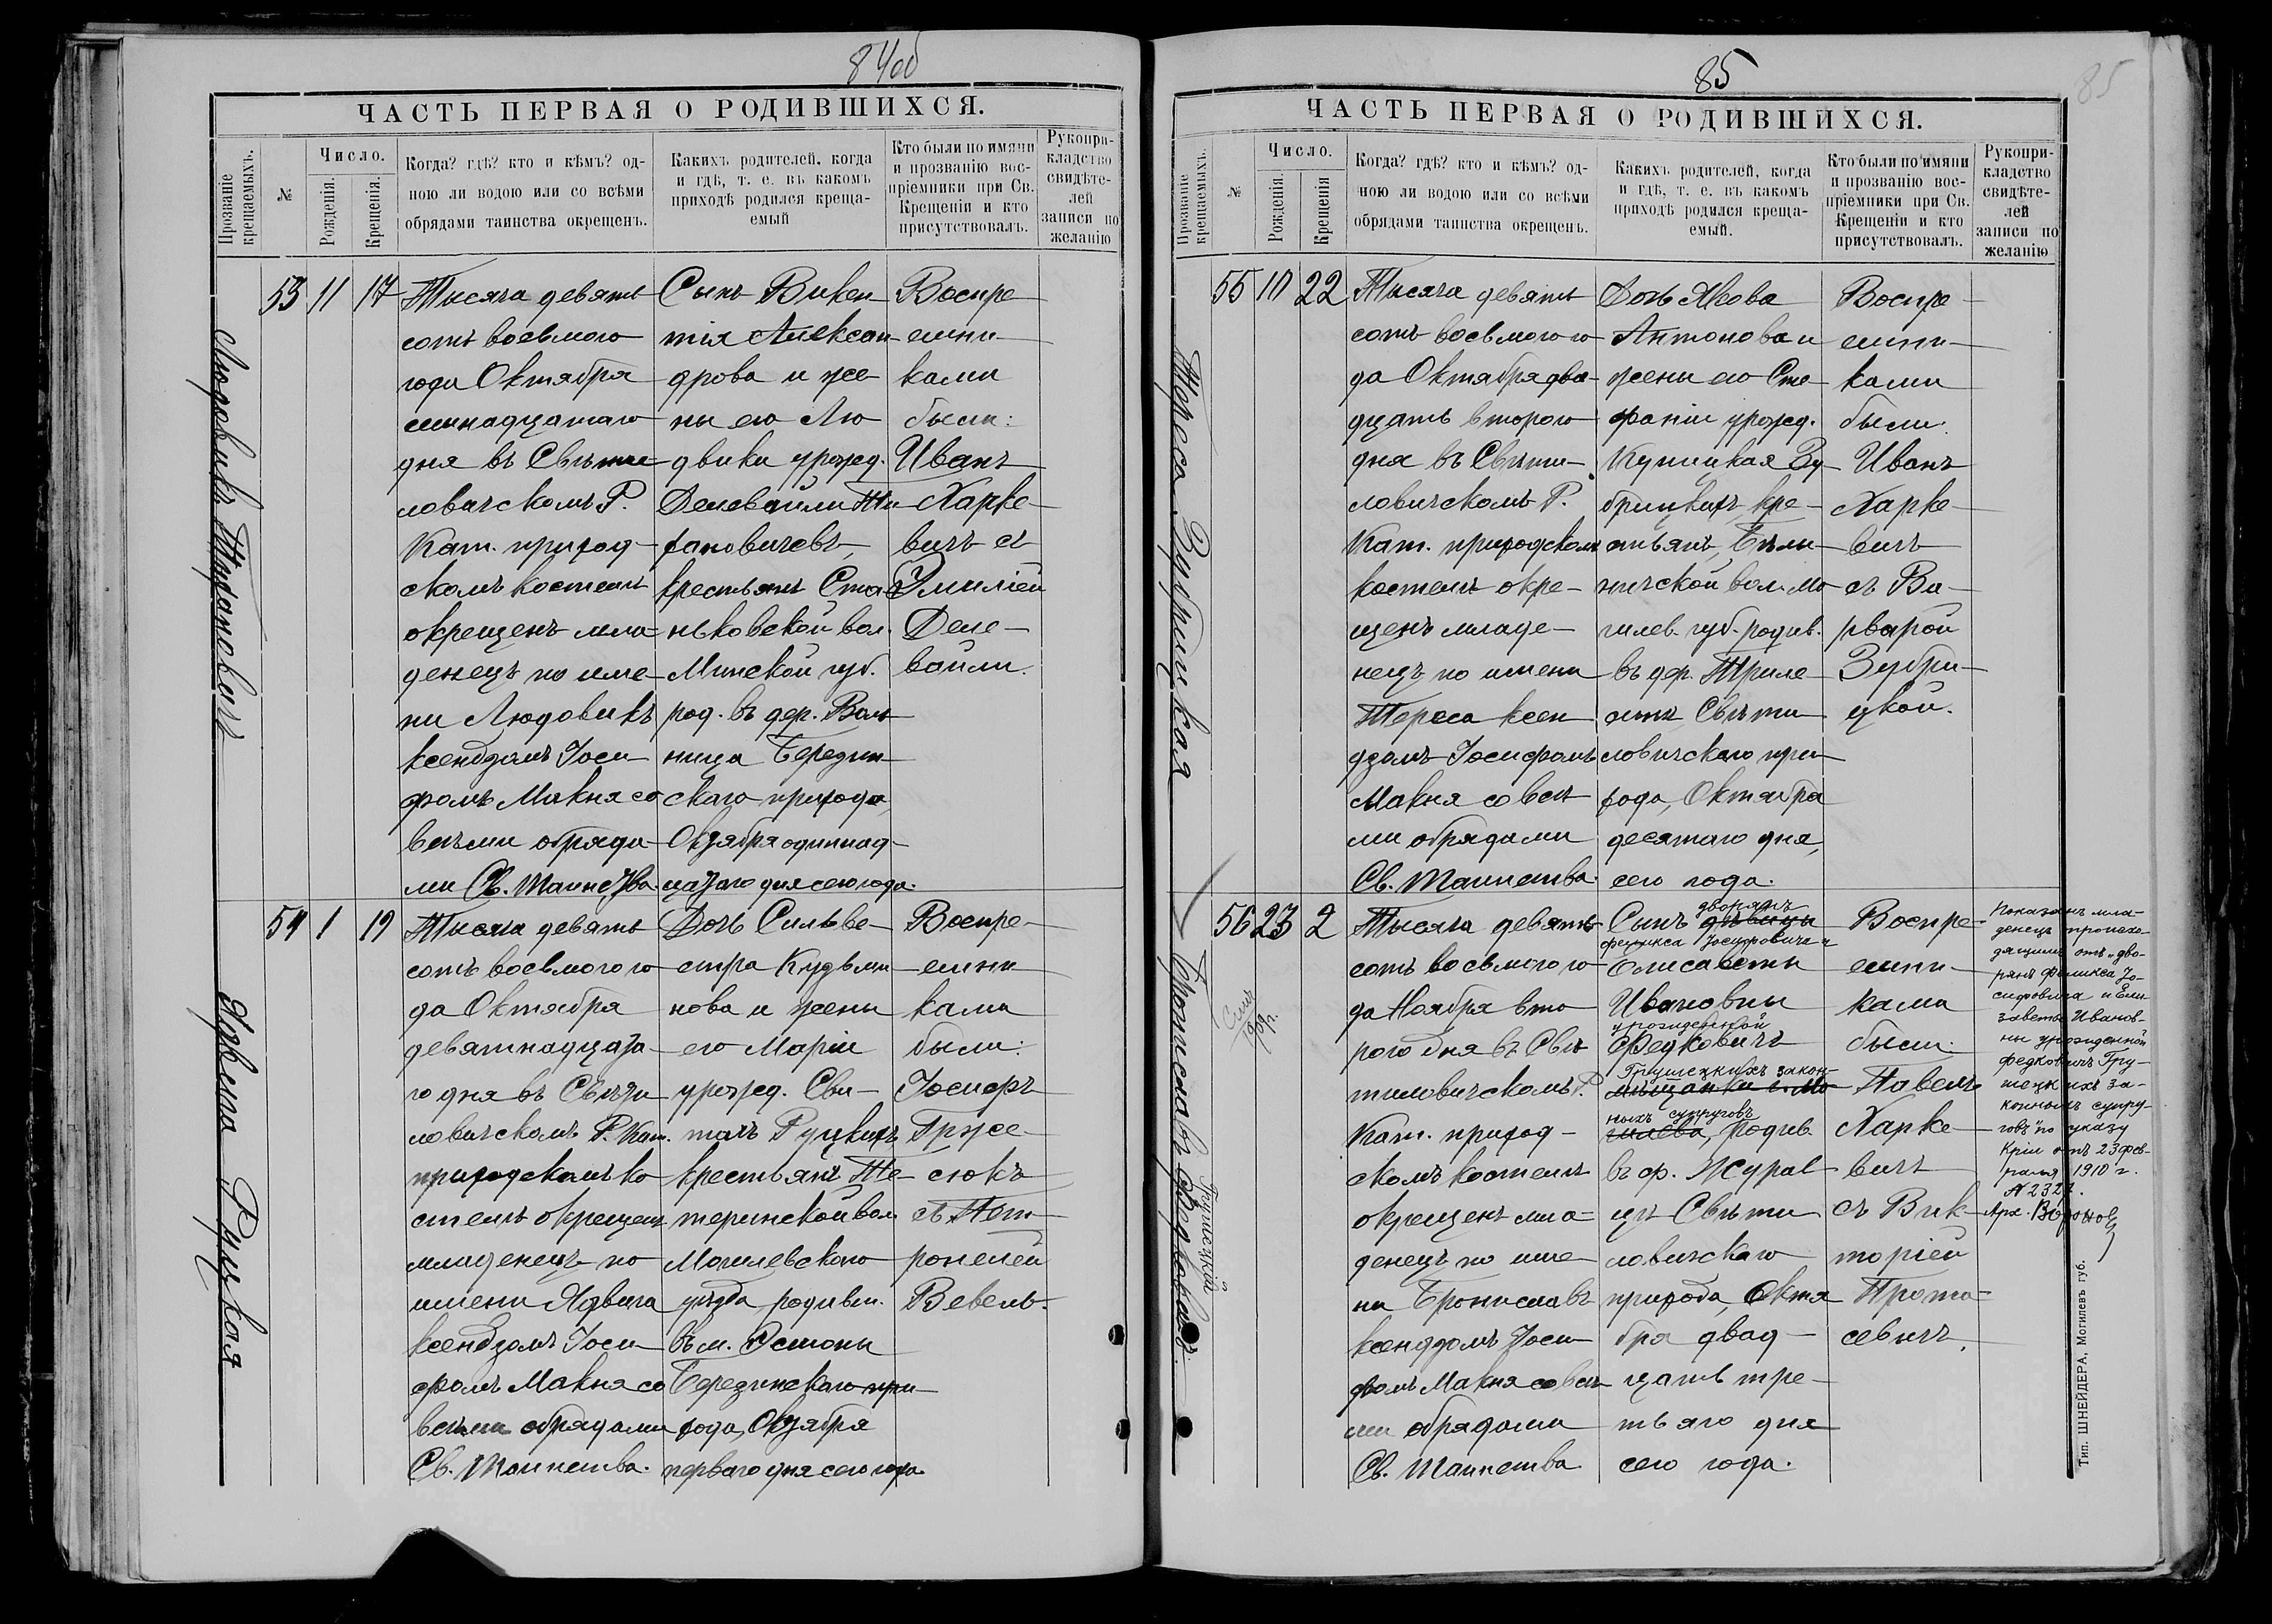 84об
ЧАСТЬ ПЕРВАЯ О РОДИВШИХСЯ.
Прозваніе крещаемыхъ.
№
Число.
Рожденія.
Крещенія.
Когда? гдѣ? кто и кѣмъ? од-
ною ли водою или со всѣми
обрядами таинства окрещенъ.
Какихъ родителей, когда
и гдѣ, т. е. въ какомъ
приходѣ родился креща-
емый
Кто были по имяни
и прозванію вос-
пріемники при Св.
Крещеніи и кто
присутствовалъ.
Рукопри-
кладство
свидѣте-
лей
записи по
желанію
Людовикъ Тифановичъ
53 11 17
Тысяча девять
сотъ восьмого
года Октября
семнадцатаго
дня въ Свѣти
ловичскомъ Р.
Кат. приход-
скомъ костелѣ
окрещенъ мла-
денецъ по име-
ни Людовикъ
ксендзомъ Іоси-
фомъ Макня со
всѣми обряда-
ми Св. Таинства.
Сынъ Викен
тія Алексан-
дрова и же
ны его Лю
двики урожд.
Делевайли Ти
фановичевъ,
крестьянъ Ста
ньковской вол.
Минской губ.
род. въ дер. Воль
ница Березин-
скаго прихода,
Октября одиннад-
цатаго дня сего года.
Воспре
емни-
ками
были:
Иванъ
Харке-
вичъ съ
Эмиліей
Деле-
вайли.
Ядвига Руцкая
54 1 19
Тысяча девять
сотъ восьмого го
да Октября
девятнадцата
го дня въ Свѣти
ловичскомъ Р. Кат.
приходскомъ ко
стелѣ окрещенъ
младенецъ по
имени Ядвига
ксендзомъ Іоси-
фомъ Макня со
всѣми обрядами
Св. Таинства.
Дочь Сильве-
стра Кузьми
нова и жены
его Маріи
урожд. Сви-
тачъ Руцкихъ
крестьянъ Те-
теринской вол.
Могилевскаго
уѣзда родивш.
въ м. Эсмоны
Березинскаго при-
хода, Октября
перваго дня сего года.
Воспре-
емни
ками
были:
Іосифъ
Грже-
сюкъ
съ Пет-
ронелей
Вевель.
85
85
ЧАСТЬ ПЕРВАЯ О РОДИВШИХСЯ.
Прозваніе крещаемыхъ.
№
Число.
Рожденія.
Крещенія
Когда? гдѣ? кто и кѣмъ? од-
ною ли водою или со всѣми
обрядами таинства окрещенъ.
Какихъ родителей, когда
и гдѣ, т. е. въ какомъ
приходѣ родился креща-
емый.
Кто были по имяни
и прозванію вос-
пріемники при Св.
Крещеніи и кто
присутствовалъ.
Рукопри-
кладство
свидѣте-
лей
записи по
желанію
Тереса Зубрицкая
55 10 22
Тысяча девять
сотъ восьмого го
да Октября два-
дцать второго
дня въ Свѣти-
ловичскомъ Р.
Кат. приходскомъ
костелѣ окре-
щенъ младе-
нецъ по имени
Тереса ксен
дзомъ Іосифомъ
Макня со всѣ
ми обрядами
Св. Таинства.
Дочь Якова
Антонова и
жены его Сте
фаніи урожд.
Купицкая Зу
брицкихъ, кре-
стьянъ, Бѣлы-
ничской вол. Мо
гилев. губ. родив.
въ др.
Свѣти
ловичскаго при
хода, Октября
десятаго дня,
сего года.
Воспре-
емни-
ками
были:
Иванъ
Харке-
вичъ
съ Ва-
рварой
Зубри-
цкой.
Брониславъ Федковичъ.
Грушецкій
56 23 2
Тысяча девять
сотъ восьмого го
да Ноября вто
рого дня въ Свѣ
тиловичскомъ Р.
Кат. приход-
скомъ костелѣ
окрещенъ мла-
денецъ по име-
ни Брониславъ
ксендзомъ Іоси-
фомъ Макня со всѣ
ми обрядами
Св. Таинства.
дворянъ
Сынъ дѣвицы
Феликса Іосифовича и
Елисаветы
Ивановны
урожденной
Федковичъ
Грушецкихъ закон-
мѣщанки г. Мо
ныхъ супруговъ
гилева, родив.
въ ф. Журав
цѣ Свѣти
ловичскаго
прихода, Октя
бря двад-
цать тре-
тьяго дня
сего года.
Воспре-
емни-
ками
были:
Павелъ
Харке-
вичъ
съ Вик-
торіей
Прота-
севичъ.
Показанъ мла-
денецъ происхо-
дящимъ отъ „дво-
рянъ Феликса Іо-
сифовича и Ели-
заветы Иванов-
ны урожденной
Федковичъ Гру-
шецкихъ за-
конныхъ супру-
говъ" по указу
Кріи отъ 23 фев-
раля 1910 г.
№ 2322.
Тип. ШНЕЙДЕРА, Могилевъ губ.